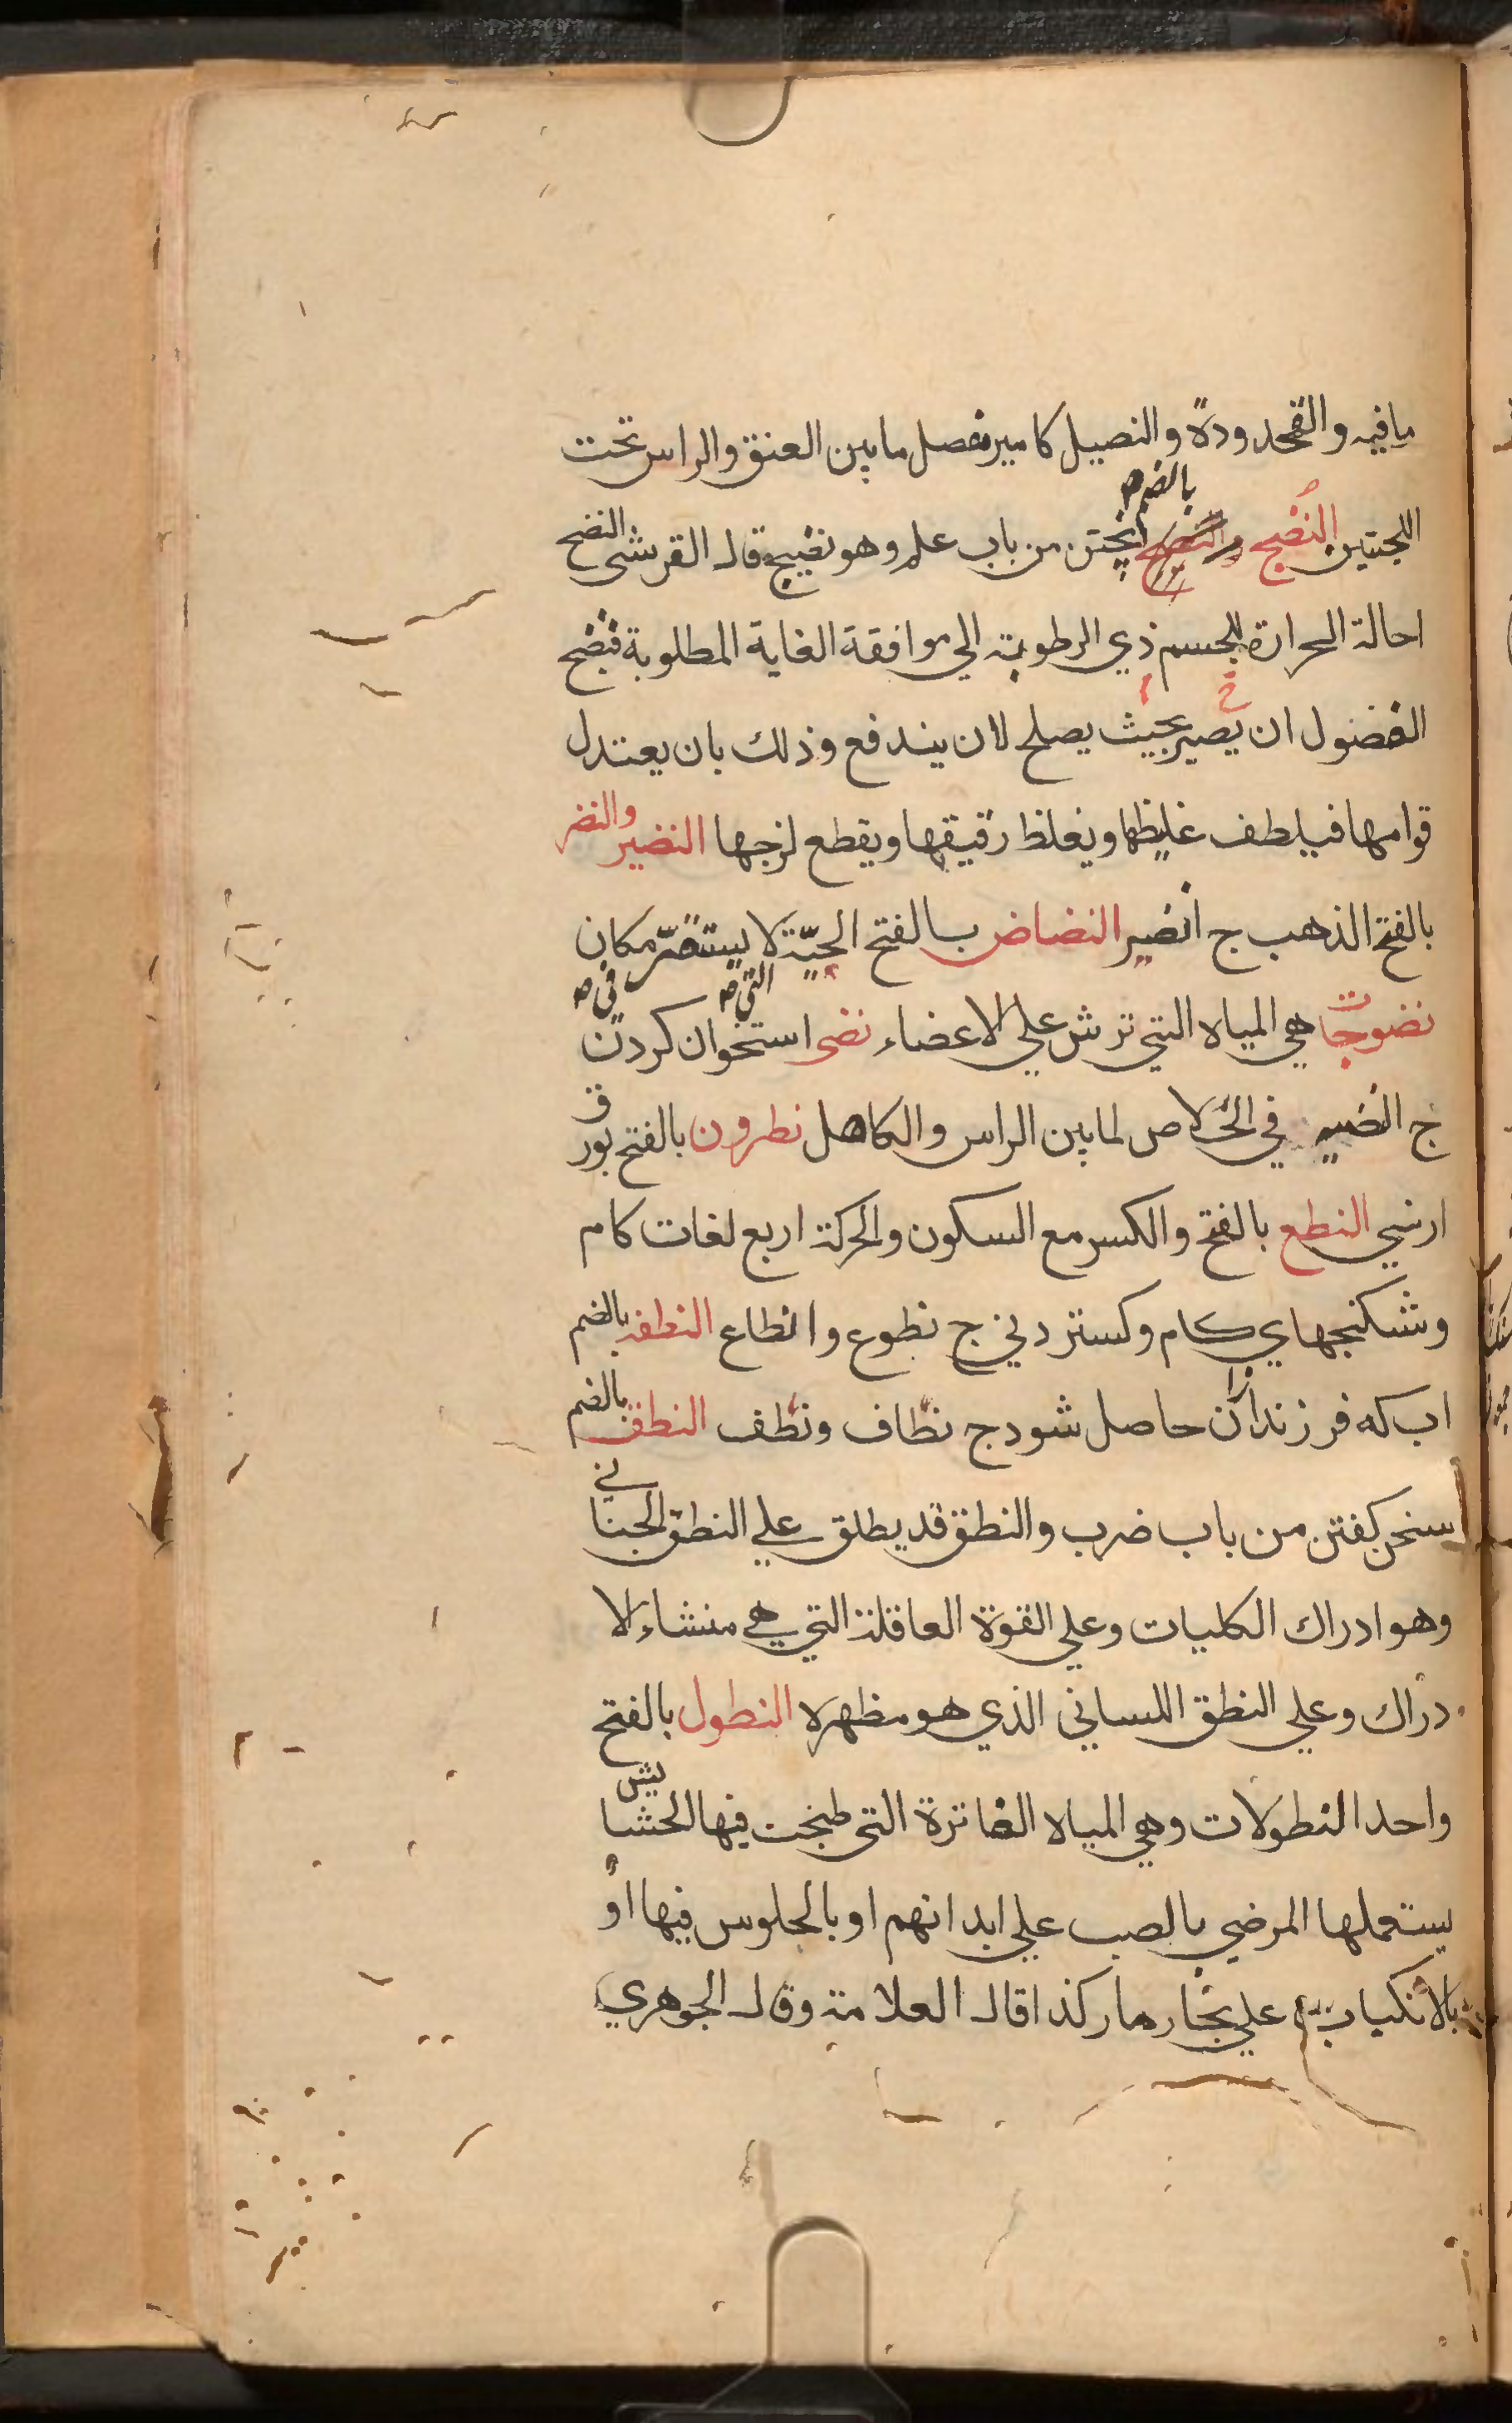 مافيه والقمحدودة والنصيل كامير مفصل مابين العنق والراس تحت
اللحيتين النضج والنضج بالضم پختن من باب علم وهو نضيج قال القرشى النضج
احالة الحرارة للجسم ذي الرطوبة الي موافقة الغاية المطلوبة فنضج
الفضول ان يصير بحيث يصلح لان يندفع وذلك بان يعتدل
قوامها فيلطف غليظها ويغلظ رقيقها ويقطع لزجها النضير والنضر
بالفتح الذهب ج انضر النضاض بالفتح الحيّة التي لا يستقرّ في مكان
نضوجات هي المياه التي ترش علي الاعضاء نضى استخوان كردن
ج في الخلاص لمابين الراس والكاهل نطرون بالفتح بورق
ارمني النطع بالفتح والكسر مع السكون والحركة اربع لغات كام
وشكنجهاي كام وكستردني ج نطوع وانطاع النطفة بالضم
اب كه فرزند ازان حاصل شود ج نطاف ونطف النطق بالضم
سخن كفتن من باب ضرب والنطق قد يطلق علي النطق الجناني
وهو ادراك الكليات وعلي القوة العاقلة التي هي منشاء الا
دراك وعلي النطق اللساني الذي هو مظهره النطول بالفتح
واحد النطولات وهي المياه الفاترة التي طبخت فيها الحشايش
يستعملها المرضي بالصب علي ابدانهم او بالجلوس فيها او
بالانكباب علي بخارها كذا قال العلامة وقال الجوهري